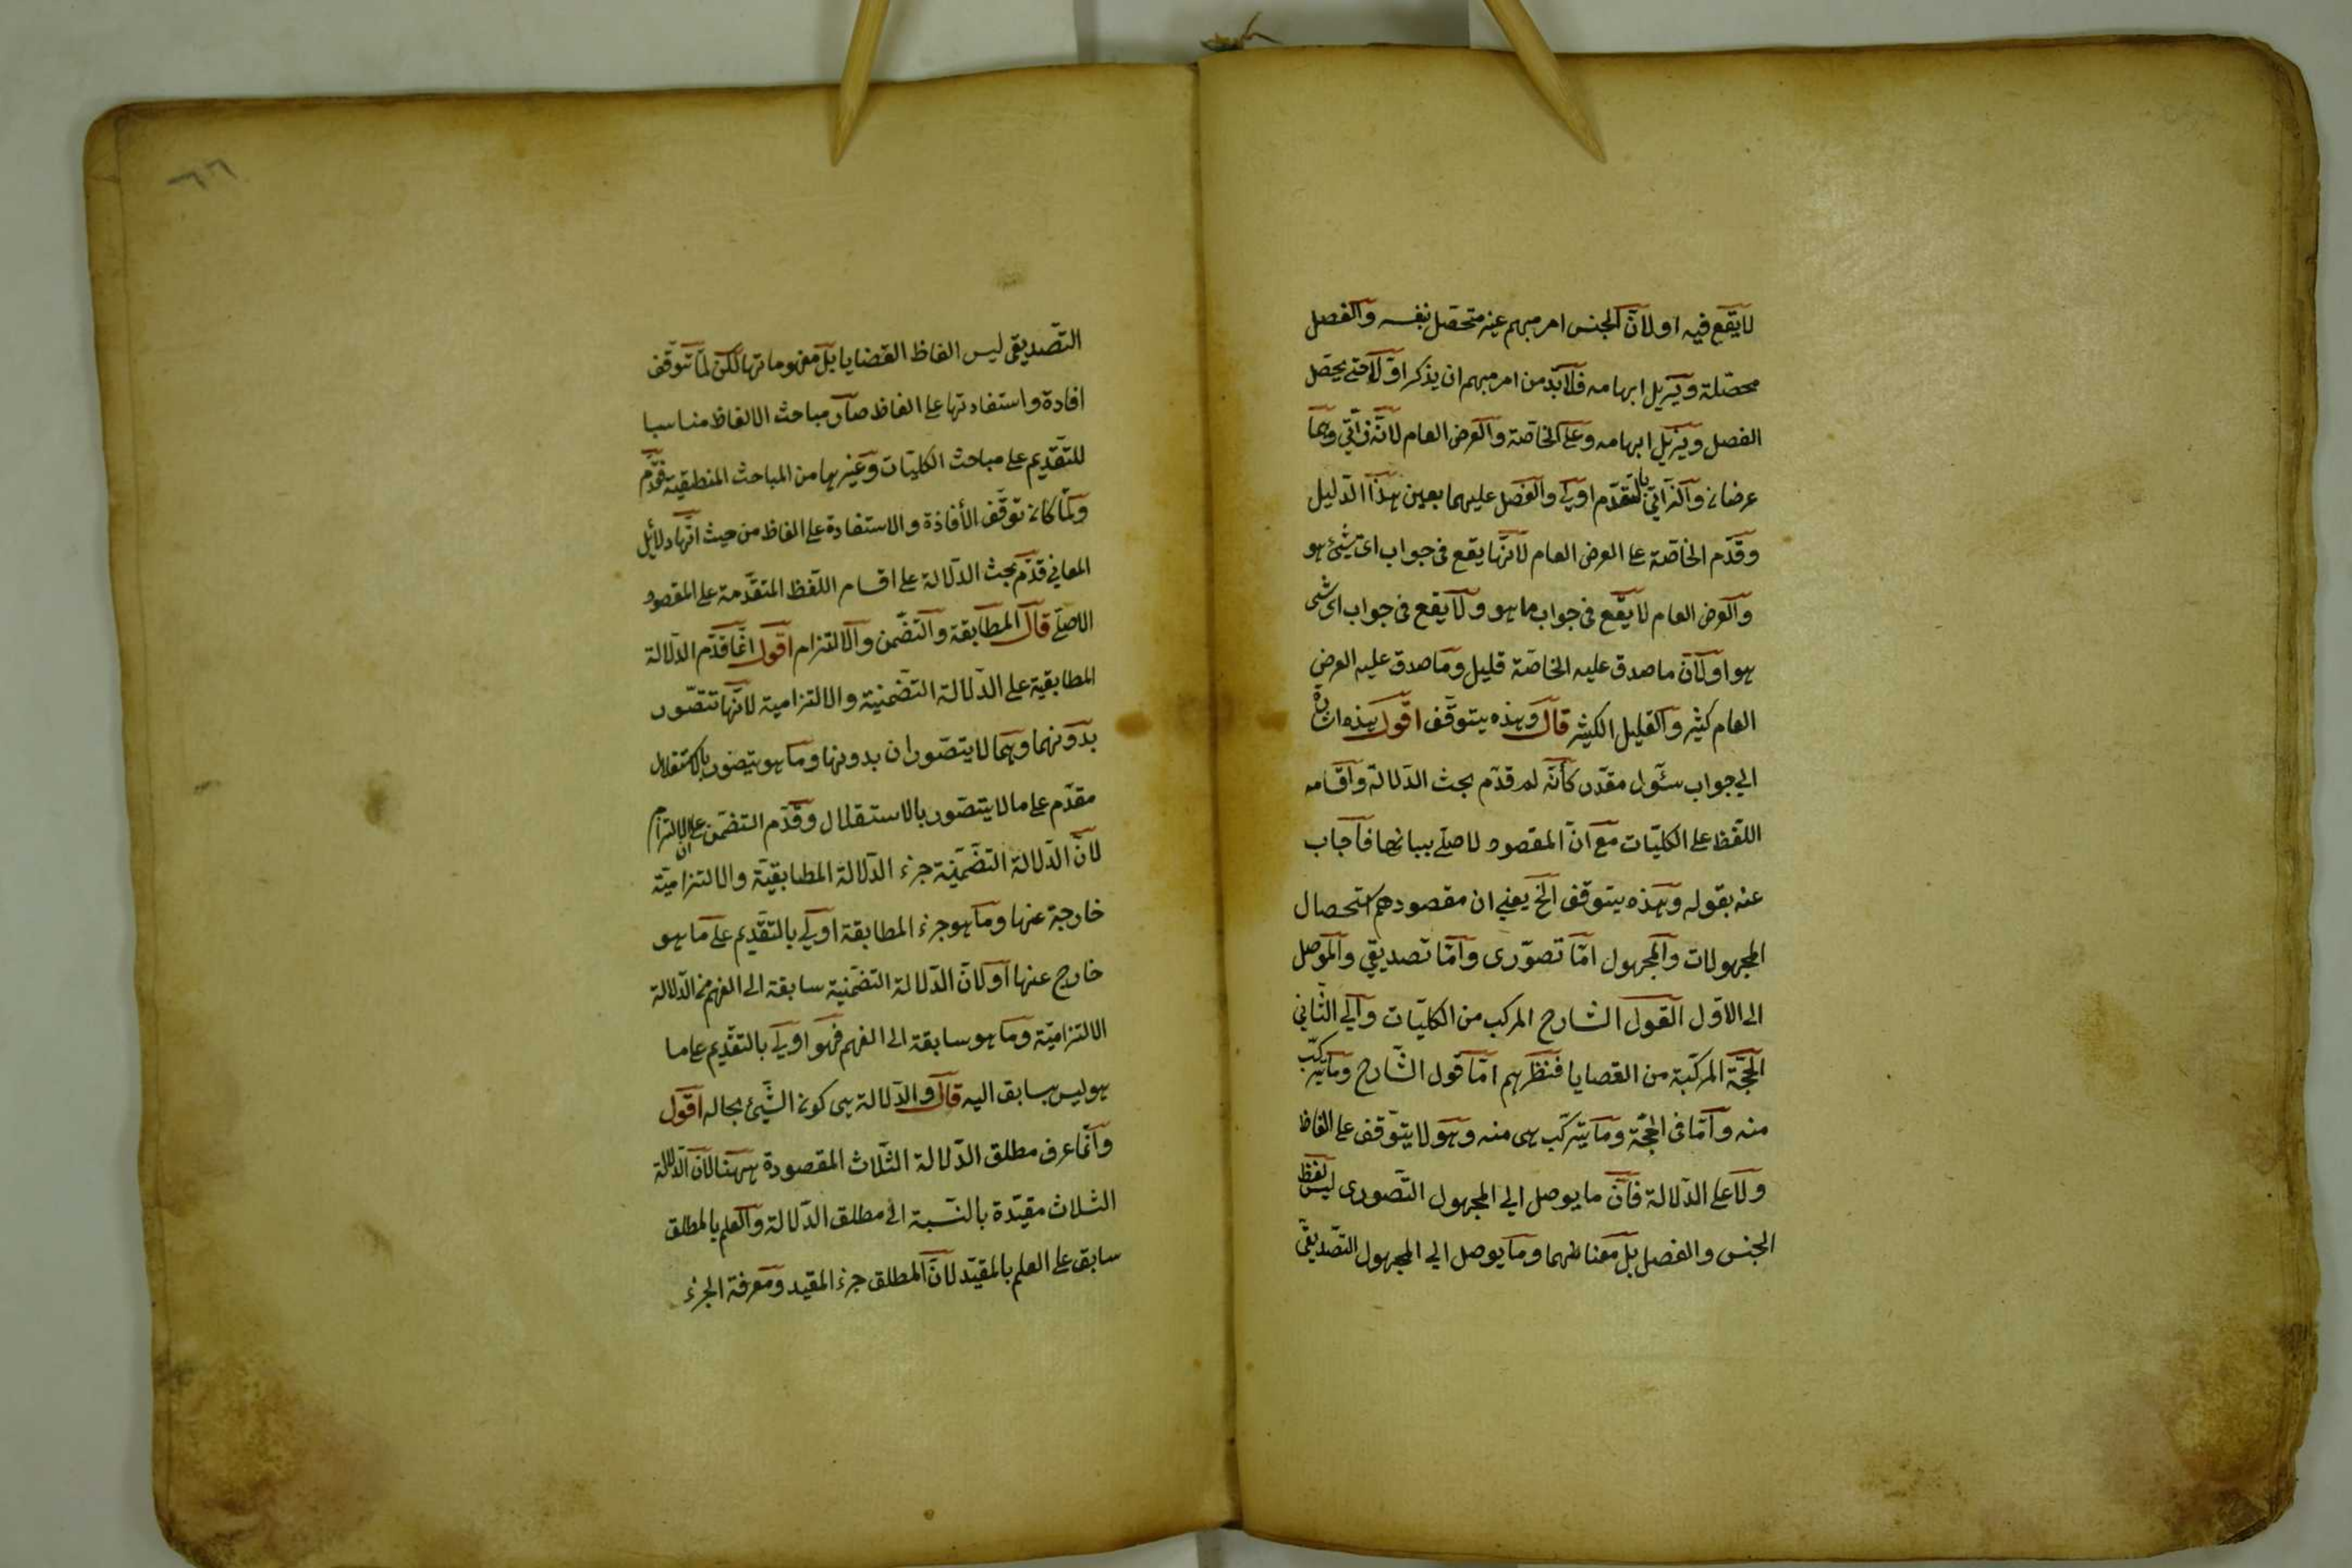 لا يقع فيه او لانّ الجنس امر مبهم غير متحصل بنفسه والفصل
محصّلة ويزيل ابهامه فلا بدّ من امر مبهم ان يذكر اوّلا حتى يحصل
الفصل ويزيل ابهامه وعلى الخاصّة والعرض العام لانّه ذاتيّ وهما
عرضان والذاتيّ بالتقدّم اولى والفصل عليهما بعين هذا الدّليل
وقدّم الخاصّة على العرض العام لانّها يقع فى جواب اىّ شئ هو
والعرض العام لا يقع فى جواب ما هو ولا يقع فى جواب اى شئ
هو او لانّ ما صدق عليه الخاصّة قليل وما صدق عليه العرض
العام كثير والقليل الكثير قال وهذه يتوقّف اقول هذه اشارة
الى جواب سؤل مقدّر كأنّه لم قدّم بحث الدّلالة واقسامه
اللّفظ على الكليّات مع انّ المقصود لاصلى بيانها فاجاب
عنه بقوله وهذه يتوقف الخ يعنى ان مقصودهم استحصال
المجهولات والمجهول امّا تصوّرى وامّا تصديقي والموصل
الى الاوّل القول الشارح المركب من الكليّات والى الثّاني
الحجّة المركّبة من القضايا فنظرهم امّا قول الشّارح وما يتركّب
منه وامّا فى الحجّة وما يتركّب هى منه وهو لا يتوّقف على الفاظ
ولا على الدّلالة فانّ ما يوصل الى المجهول التّصورى ليس لفظ
الجنس والفصل بل معناهما وما يوصل الى المجهول التّصديقىّ
٦٦
التّصديقى ليس الفاظ القضايا بل مفهوماتها لكن لمّا توقّف
افادة واستفادتها على الفاظ صار مباحث الالفاظ مناسبا
للتّقديم على مباحث الكليّات وغيرها من المباحث المنطقية فقدّم
ولمّا كان توقّف الأفادة والاستفادة على الفاظ من حيث انّها دلائل
المعاني قدّم بحث الدلالة على اقسام اللّفظ المتقدّمة على المقصود
الاصلّى قال المطابقة والتضّمن والالتزام اقول انّما قدّم الدّلالة
المطابقية على الدّلالة التضّمنيّة والالتزامية لانّها تتصّور
بدونهما وهما لا يتصّوران بدونها وما هو يتصور بالاستقلال
مقدّم على ما لا يتصّور بالاستقلال وقدّم التضمّن على الالتزام
لانّ الدّلالة التضّمنيّة جزء الدّلالة المطابقيّة والالتزاميّة
خارجة عنها وما هو جزء المطابقة اولى بالتقّديم على ما هو
خارج عنها او لانّ الدّلالة التضّمنيّة سابقة الى الفهم من الدّلالة
الالتزاميّة وما هو سابقة الى الفهم فهو اولى بالتقّديم على ما
هو ليس بسابق اليه قال والدّلالة هى كون الشّيئ بحاله اقول
وانّما عرف مطلق الدّلالة الثّلاث المقصودة ههنا لانّ الدّلالة
الثلاث مقيّدة بالنّسبة الى مطلق الدّلالة والعلم بالمطلق
سابق على العلم بالمقيّد لانّ المطلق جزء المقيد ومعرفة الجزء